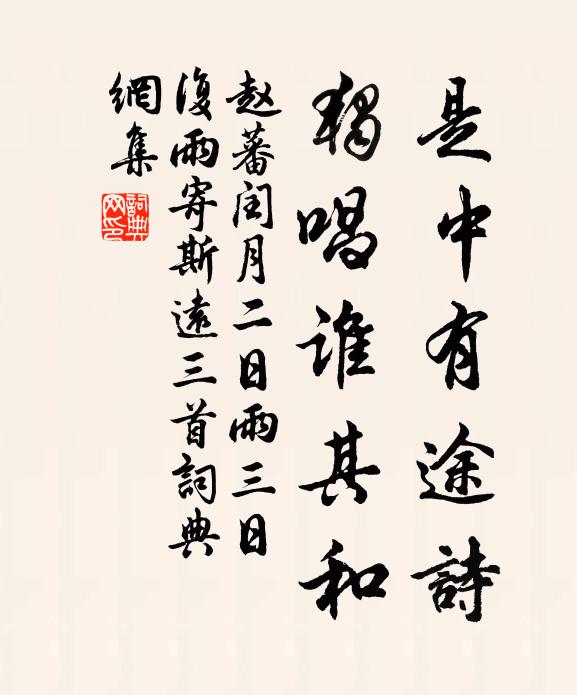 是中有途詩
獨唱谁其和
赵蕃闰月二日雨三日
復雨寄斯遠三首詞典
網集
詞典
网印